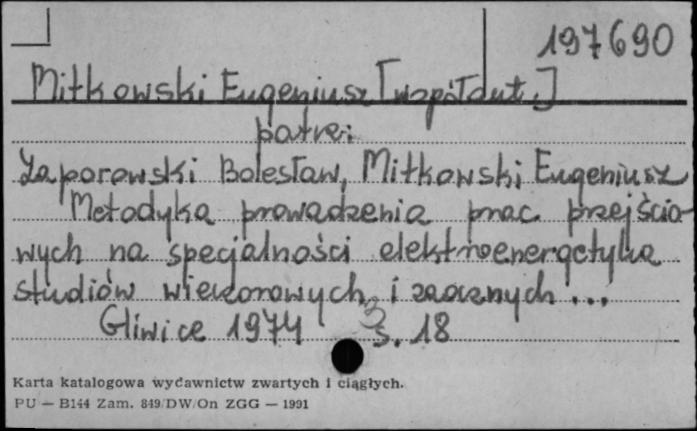 197690
Mitkowski Eugeniusz [współaut.]
patrz:
Zaporowski Bolesław, Mitkowski Eugeniusz
Metodyka prowadzenia prac przejścio-
wych na specjalności elektroenergetyka
studiów wieczorowych i zaocznych ...
Gliwice 1974 s. 18
Karta katalogowa wydawnictw zwartych i ciągłych.
PU — B144 Zam. 849/DW/On ZGG — 1991